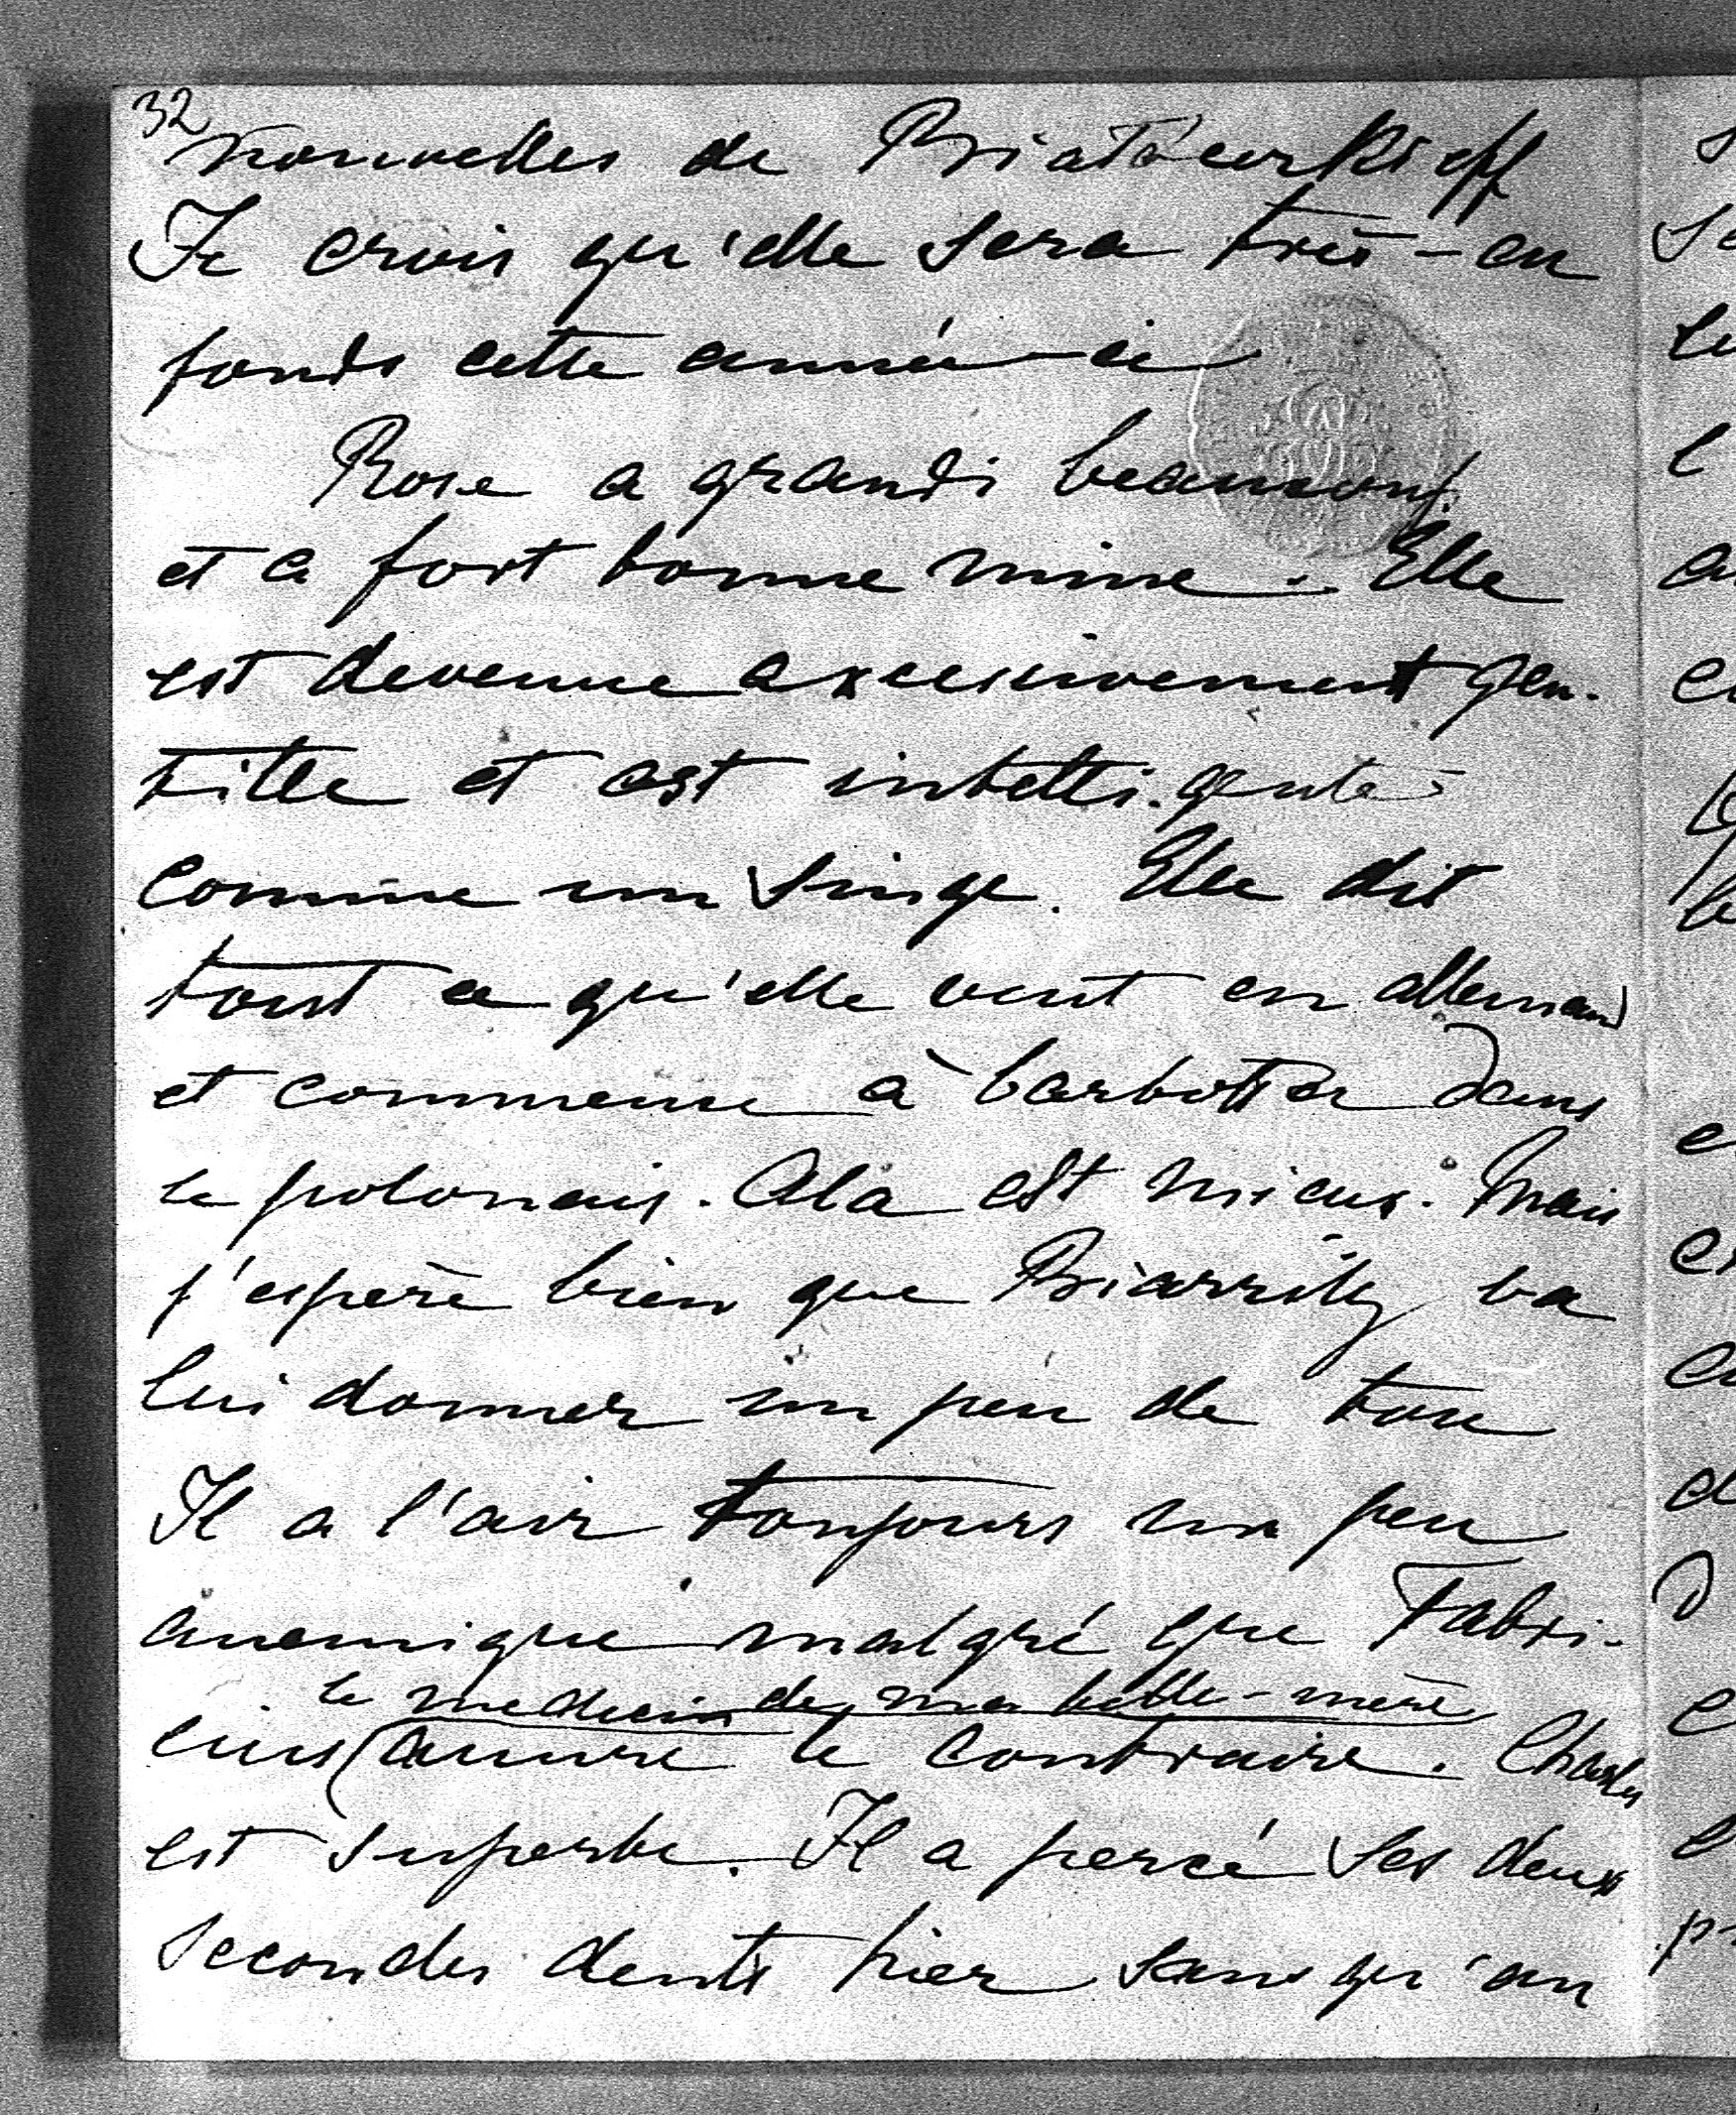 32
nouvelles de Biatocerkieff
Je crois qu'elle sera très-en
fonds cette année-ci
Rose a grandi beaucoup
et a fort bonne mine. Elle
est devenue excessivement gen-
tille et est intelli-gente
comme un singe. Elle dit
tout ce qu'elle veut en allemand
et commence à barbotter dans
le polonais. Ala est mieux. Mais
j'espère bien que Biarritz va
lui donner un peu de ton
Il a l'air toujours un peu
anemique malgré que Fabri-
le medecin de ma belle-mère
cius (assure le contraire. Charles
est superbe. Il a percé ses deux
secondes dents hier sans qu'on